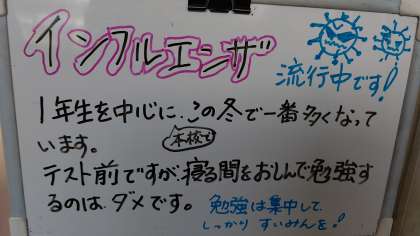 インフルエンザ
流行中です!
1年生を中心に、この冬で一番多くなって
います。
テスト前ですが、寝る間をおしんで勉強す
るのは、ダメです。
勉強は集中して、
しっかり すいみんを!